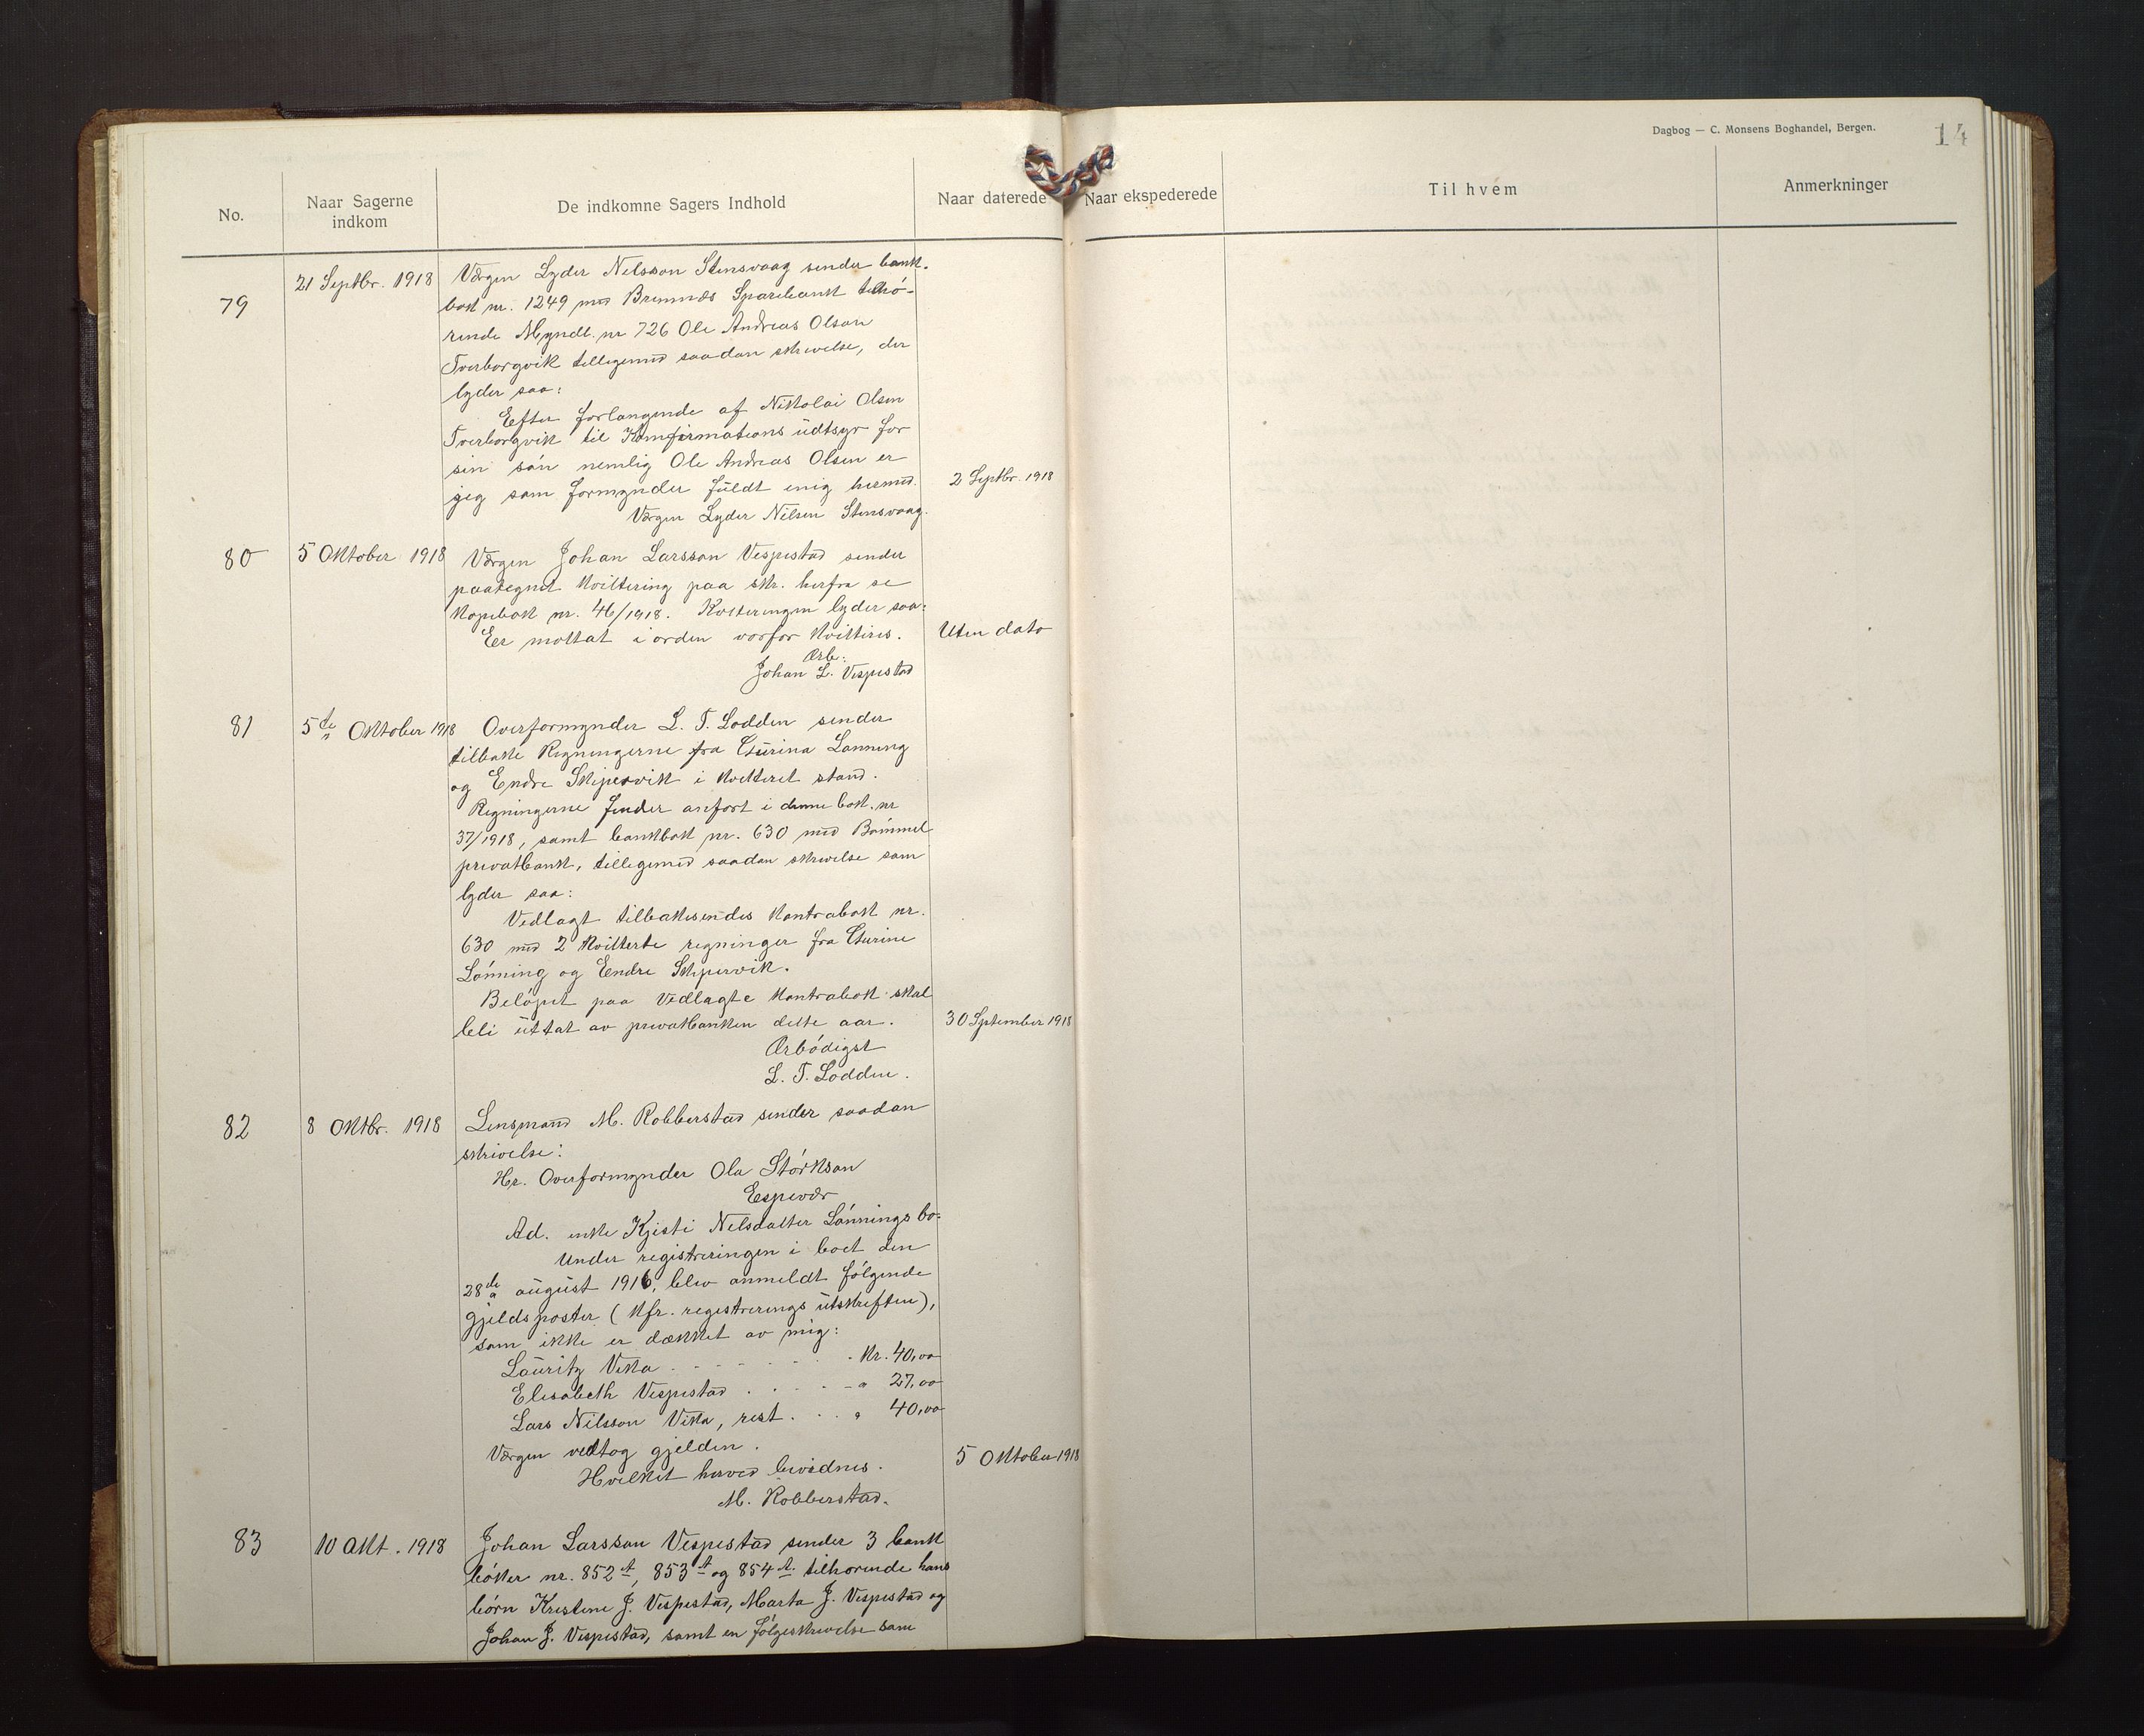 Dagbog — C. Monsens Boghandel, Bergen.
14
No.
Naar Sagerne indkom
De indkomne Sagers Indhold
Naar daterede
Naar ekspederede
Til hvem
Anmerkninger
79
21 Septbr. 1918
Værgen Lyder Nelsson Stensvaag sender bank-
bok nr. 1249 med Bremnæs Sparebank tilhö-
rende Myndl. nr 726 Ole Andreas Olson
Tverborgvik tillegemed saadan skrivelse, der
lyder saa:
Efter forlangende af Nikolai Olsen
Tverborgvik til Komfirmations üdtsyr for
sin sön nemlig Ole Andreas Olsen er
jeg som formynder füldt enig hermed.
2 Septbr. 1918
Værgen Lyder Nilsen Stensvaag.
80
5 Oktober 1918
Værgen Johan Larsson Vespestad sender
paategnet kvittering paa skr. herfra se
Kopibok nr. 46/1918. Kvitteringen lyder saa:
Er mottat i orden vorfor kvitteres.
Uten dato
Ærb:
Johan L. Vespestad
81
5te Oktober 1918
Overformynder L. T. Lodden sender
tilbake Regningerne fra Gurina Lønning
og Endre Skipervik i kvitteret stand.
Regningerne finder anfört i denne bok. nr
37/1918, samt bankbok nr. 630 med Bömmel
privatbank, tillegemed saadan skrivelse som
lyder saa:
Vedlagt tilbakesendes kontrabok nr.
630 med 2 kvitterte regninger fra Gurine
Lönning og Endre Skipervik.
Belöpet paa Vedlagte kontrabok skal
bli üttat av privatbanken dette aar.
30 September 1918
Ærbödigst
L. T. Lodden.
82
8 Oktbr. 1918
Lensmand M. Robberstad sender saadan
skrivelse:
Hr. Overformynder Ola Störkson
Espevær
Ad. enke Kjisti Nelsdatter Lönnings bo-
Under registreringen i boet den
28de august 1916, blev anmeldt fölgende
gjeldsposter (Kfr. registrerings ütskriften),
som ikke er dækket av mig:
Lauritz Vika . . . . . . Kr. 40,00
Elisabeth Vespestad . . . . - " 27,00
Lars Nilsson Vika, rest . . . " 40,00
Værgen vedtog gjelden.
5 Oktober 1918
Hvilket herved bevidnes.
M. Robberstad.
83
10 Okt. 1918
Johan Larsson Vespestad sender 3 bank
böker nr. 852 A, 853 A og 854 A. tilhorende hans
börn Kristine J. Vespestad, Marta J. Vespestad og
Johan J. Vespestad, samt en fölgeskrivelse som